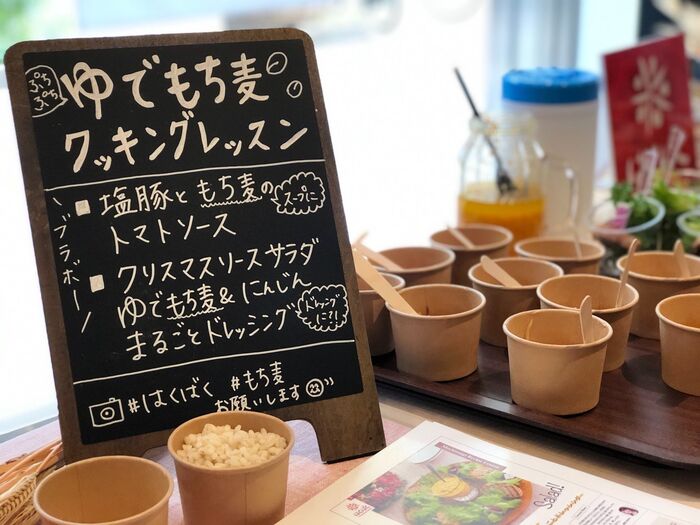 ぷちぷち
ゆでもち麦
クッキングレッスン
塩豚ともち麦の
スープに
トマトソース
クリスマスリースサラダ
ゆでもち麦&にんじん
まるごとドレッシング
ドレッシングに!
\ブラボー/
#はくばく #もち麦
お願いします
Salad!